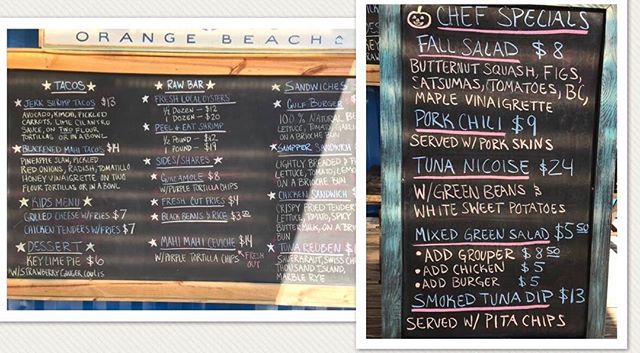 ORANGE BEACH
TACOS
JERK SHRIMP TACOS $13
AVOCADO, KIMCHI, PICKLED
CARROTS, LIME CILANTRO
SAUCE, ON TWO FLOUR
TORTILLAS OR IN A BOWL
BLACKENED MAHI TACOS $14
PINEAPPLE SLAW, PICKLED
RED ONIONS, RADISH, TOMATILLO
HONEY VINAIGRETTE ON TWO
FLOUR TORTILLAS OR IN A BOWL
KIDS MENU
GRILLED CHEESE W/FRIES $7
CHICKEN TENDERS W/FRIES $7
DESSERT
KEY LIME PIE $6
W/STRAWBERRY GINGER COULIS
RAW BAR
FRESH LOCAL OYSTERS
1/2 DOZEN - $12
1 DOZEN - $20
PEEL & EAT SHRIMP
1/2 POUND - $12
1 POUND - $19
SIDES/SHARES
GUACAMOLE $8
W/PURPLE TORTILLA CHIPS
FRESH CUT FRIES $4
BLACK BEANS & RICE $3.50
MAHI MAHI CEVICHE $14
W/PURPLE TORTILLA CHIPS
FRESH
OUT
SANDWICHES
GULF BURGER
100% NATURAL BE
LETTUCE, TOMATO, GARLI
ON A BRIOCHE BUN
SANDWICH
LIGHTLY BREADED & F
LETTUCE, TOMATO, LEMO
ON A BRIOCHE BUN
CHICKEN SANDWICH
CRISPY FRIED TENDER
LETTUCE, TOMATO, SPICY
BUTTERMILK, ON A BRIO
BUN
TUNA REUBEN $1
SAUERKRAUT, SWISS CH
THOUSAND ISLAND,
MARBLE RYE
CHEF SPECIALS
FALL SALAD $8
BUTTERNUT SQUASH, FIGS,
SATSUMAS, TOMATOES, BC,
MAPLE VINAIGRETTE
PORK CHILI $9
SERVED W/ PORK SKINS
TUNA NICOISE $24
W/GREEN BEANS &
WHITE SWEET POTATOES
MIXED GREEN SALAD $5.50
• ADD GROUPER $8.50
• ADD CHICKEN $5
• ADD BURGER $5
SMOKED TUNA DIP $13
SERVED W/ PITA CHIPS